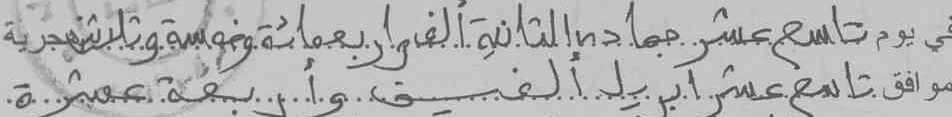 في يوم تاسع عشر جمادى الثانية ألف وأربعمائة وخمسة وثلاثين هجرية
موافق تاسع عشر ابريل ألفين وأربعة عشرة.